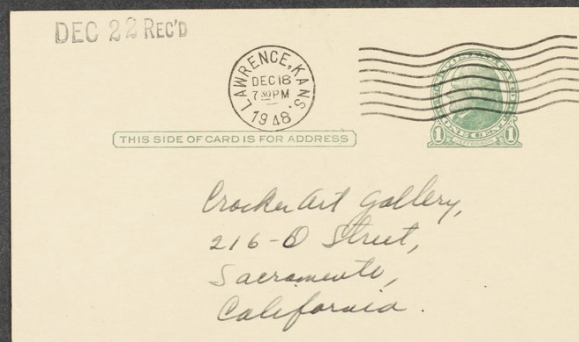 DEC 22 REC'D
LAWRENCE, KANS.
DEC 18
7 30 PM
1948
THIS SIDE OF CARD IS FOR ADDRESS
1 ONE CENT 1
Crocker Art Gallery,
216-O Street,
Sacramento,
California.